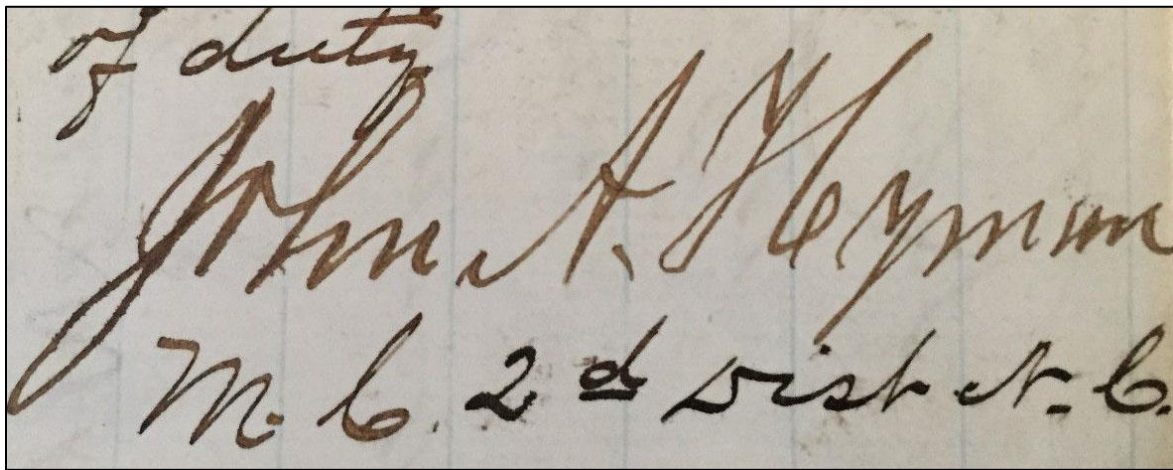 of duty
John A. Hyman
M. C. 2d Dist N. C.